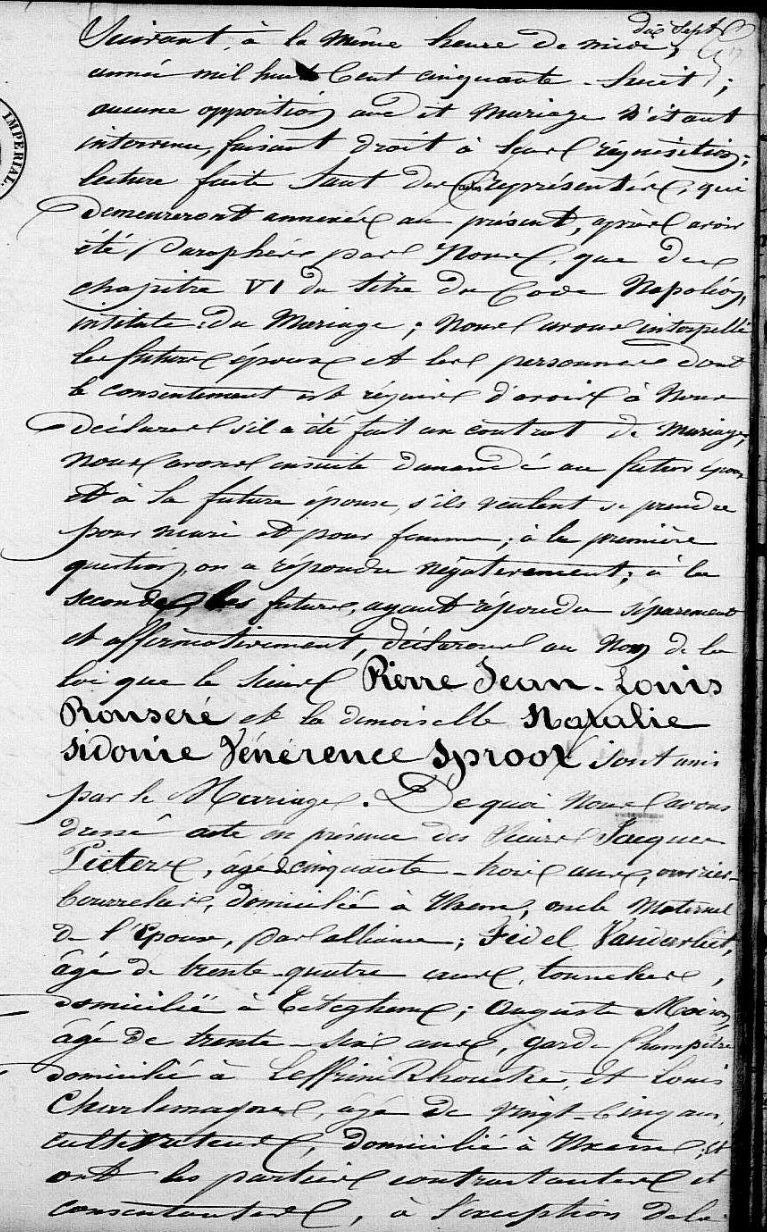 dix Sept
Suivant, à la même heure de midi,
année mil huit Cent cinquante-huit ;
aucune opposition au dit Mariage n'étant
intervenue, faisant droit à leur réquisition ;
lecture faite tant des représentées, qui
demeureront annexées au présent, après avoir
été paraphées par Nous, que du
chapitre VI du titre du Code Napoléon,
intitulé : du Mariage ; Nous avons interpellé
les futurs époux et les personnes dont
le consentement est requis d'avoir à Nous
déclarer s'il a été fait un contrat de Mariage,
Nous avons ensuite demandé au futur époux
et à la future épouse, s'ils veulent se prendre
pour mari et pour femme ; à la première
question, on a répondu négativement ; à la
seconde, les futurs, ayant répondu séparement
et affirmativement, déclarons au Nom de la
loi que le Sieur Pierre Jean-Louis
Ronseré et la demoiselle Natalie
Sidonie Vénérence Sproot sont unis
par le Mariage. De quoi Nous avons
dressé acte en présence des Sieurs Jacques
Pieters, âgé de cinquante-trois ans, ouvrier-
bourrelier, domicilié à Uxem, oncle Maternel
de l'Epoux, par alliance ; Fidel Vanderliet,
âgé de trente-quatre ans, tonnelier,
domicilié à Téteghem ; Auguste Moison,
âgé de trente-six ans, garde Champêtre
domicilié à Leffrinckhoucke, et Louis
Charlemagne, âgé de vingt-cinq ans,
cultivateur, domicilié à Uxem ; et
ont les parties contractantes et
consentantes, à l'exception de la